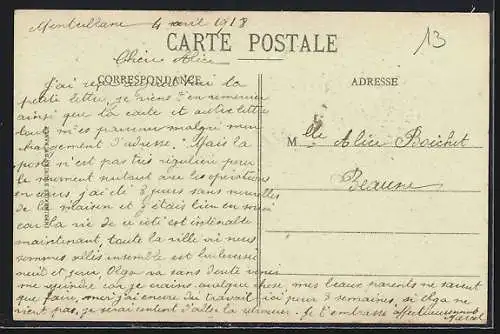 Montbéliard 4 avril 1918
13
CARTE POSTALE
Chère Alice
CORRESPONDANCE
ADRESSE
J'ai reçu aujourd'hui ta
petite lettre, je viens t'en remercier
ainsi que la carte et autre lettre
tout m'est parvenu malgré mon
changement d'adresse. Mais la
poste n'est pas très régulière pour
le moment surtout avec les opérations
en cours, j'ai été 8 jours sans nouvelles
de la maison et j'étais bien en souci
car la vie de ce côté est intenable
maintenant, toute la ville où nous
sommes allés ensemble est bombardée
nuit et jour. Olga va sans doute venir
me rejoindre car je crains quelque chose, mes beaux parents ne savent
que faire, moi j'ai encore du travail ici pour 3 semaines, si Olga ne
vient pas, je serai content d'aller la retrouver. Je t'embrasse affectueusement
Marcel
Melle Alice Boichet
Beaune